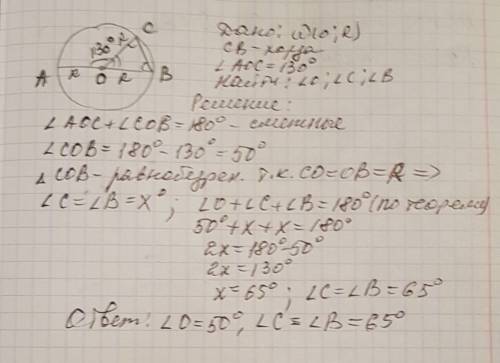 C
130° R
A R O R B
Дано: w(O; R)
CB - хорда
∠AOC = 130°
Найти: ∠O; ∠C; ∠B
Решение:
∠AOC + ∠COB = 180° - смежные
∠COB = 180° - 130° = 50°
∠COB - равнобедрен. т.к. CO = OB = R =>
∠C = ∠B = X°; ∠O + ∠C + ∠B = 180° (по теореме)
50° + x + x = 180°
2x = 180° - 50°
2x = 130°
x = 65°; ∠C = ∠B = 65°
Ответ: ∠O = 50°, ∠C = ∠B = 65°